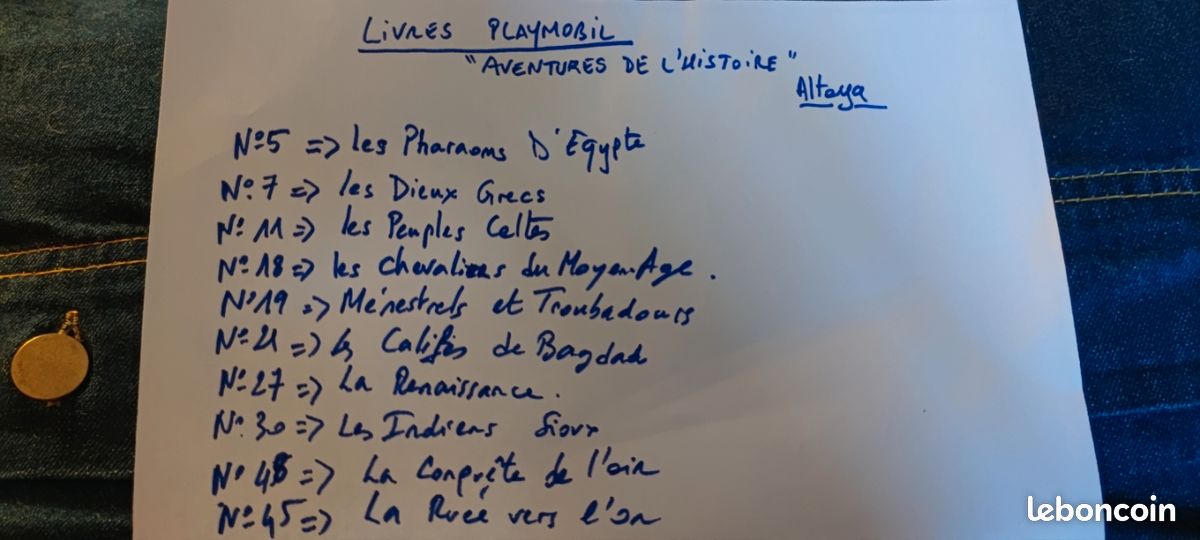 LIVRES PLAYMOBIL
"AVENTURES DE L'HISTOIRE"
Altaya
N°5 => les Pharaons D'Egypte
N°7 => les Dieux Grecs
N°11 => les Peuples Celtes
N°18 => les Chevaliers du Moyen-Age.
N°19 => Ménestrels et Troubadours
N°21 => les Califes de Bagdad
N°27 => La Renaissance.
N°30 => Les Indiens Sioux
N°48 => La Conquête de l'air
N°45 => La Ruée vers l'or
leboncoin